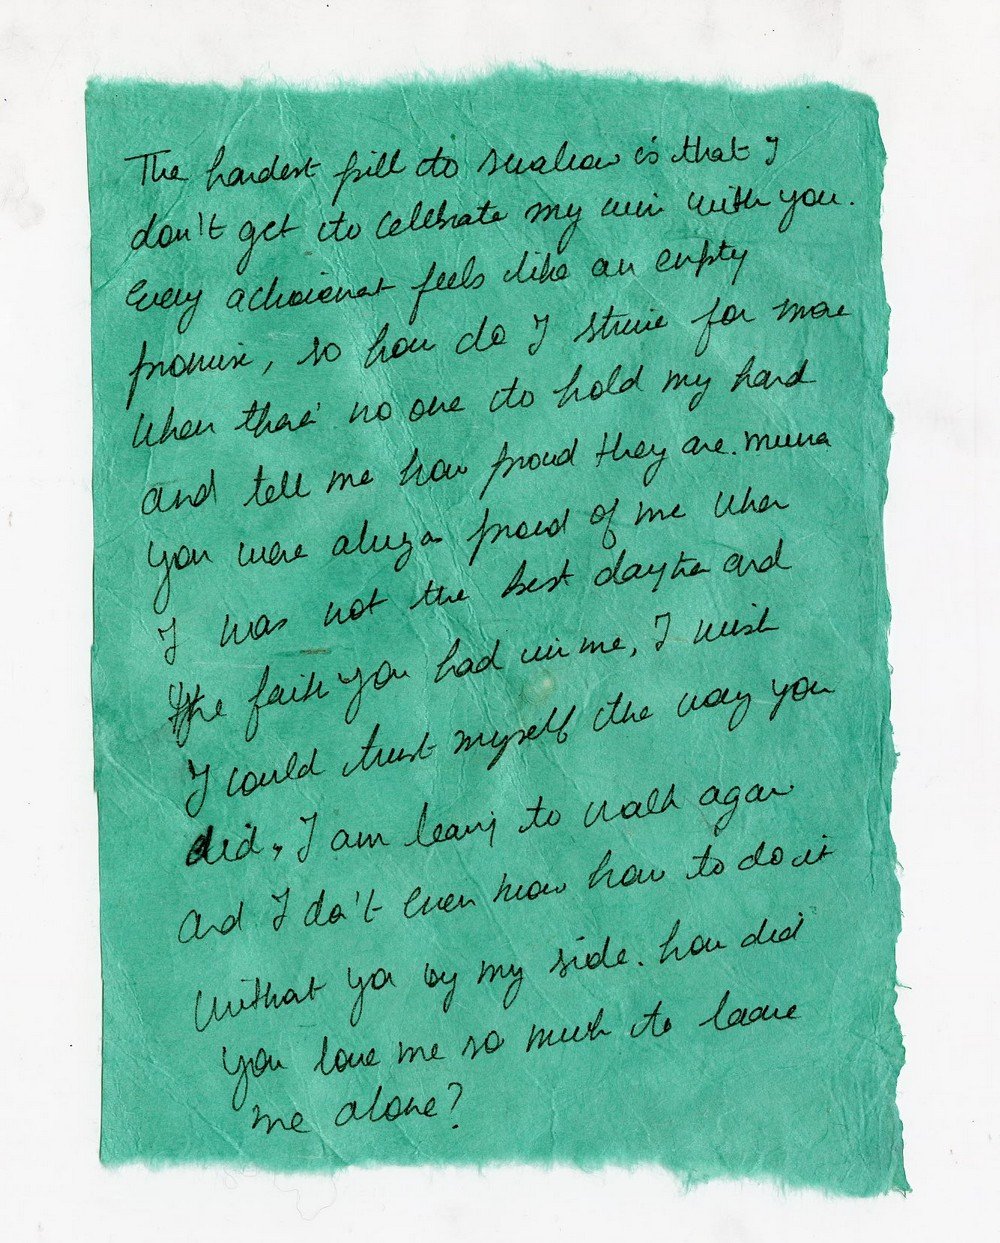 The hardest pill to swallow is that I
don't get to celebrate my win with you.
Every achievment feels like an empty
promise, so how do I strive for more
When there's no one to hold my hand
and tell me how proud they are.
you were always proud of me when
I was not the best daughter and
the faith you had in me, I wish
I could trust myself the way you
did, I am learing to walk again
and I don't even know how to do it
without you by my side. how did
you love me so much to leave
me alone?